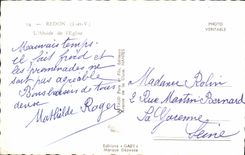 14 - REDON (I.-et-V.)
L'Abside de l'Église
PHOTO
VÉRITABLE
Mauvais temps
il fait froid et
les promenades ne
sont pas agréable
Bons baisers de tous
deux
Mathilde Roger
Madame Rolin
2 Rue Martin Bernard
La Garenne
Seine
Editions "GABY"
Marque Déposée